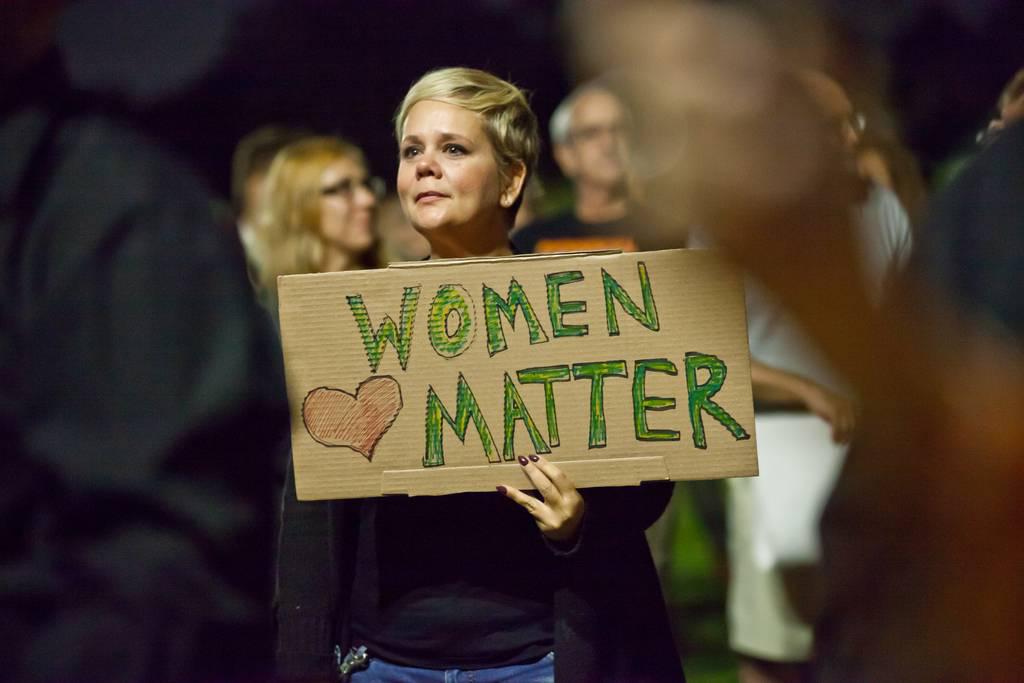 WOMEN
MATTER